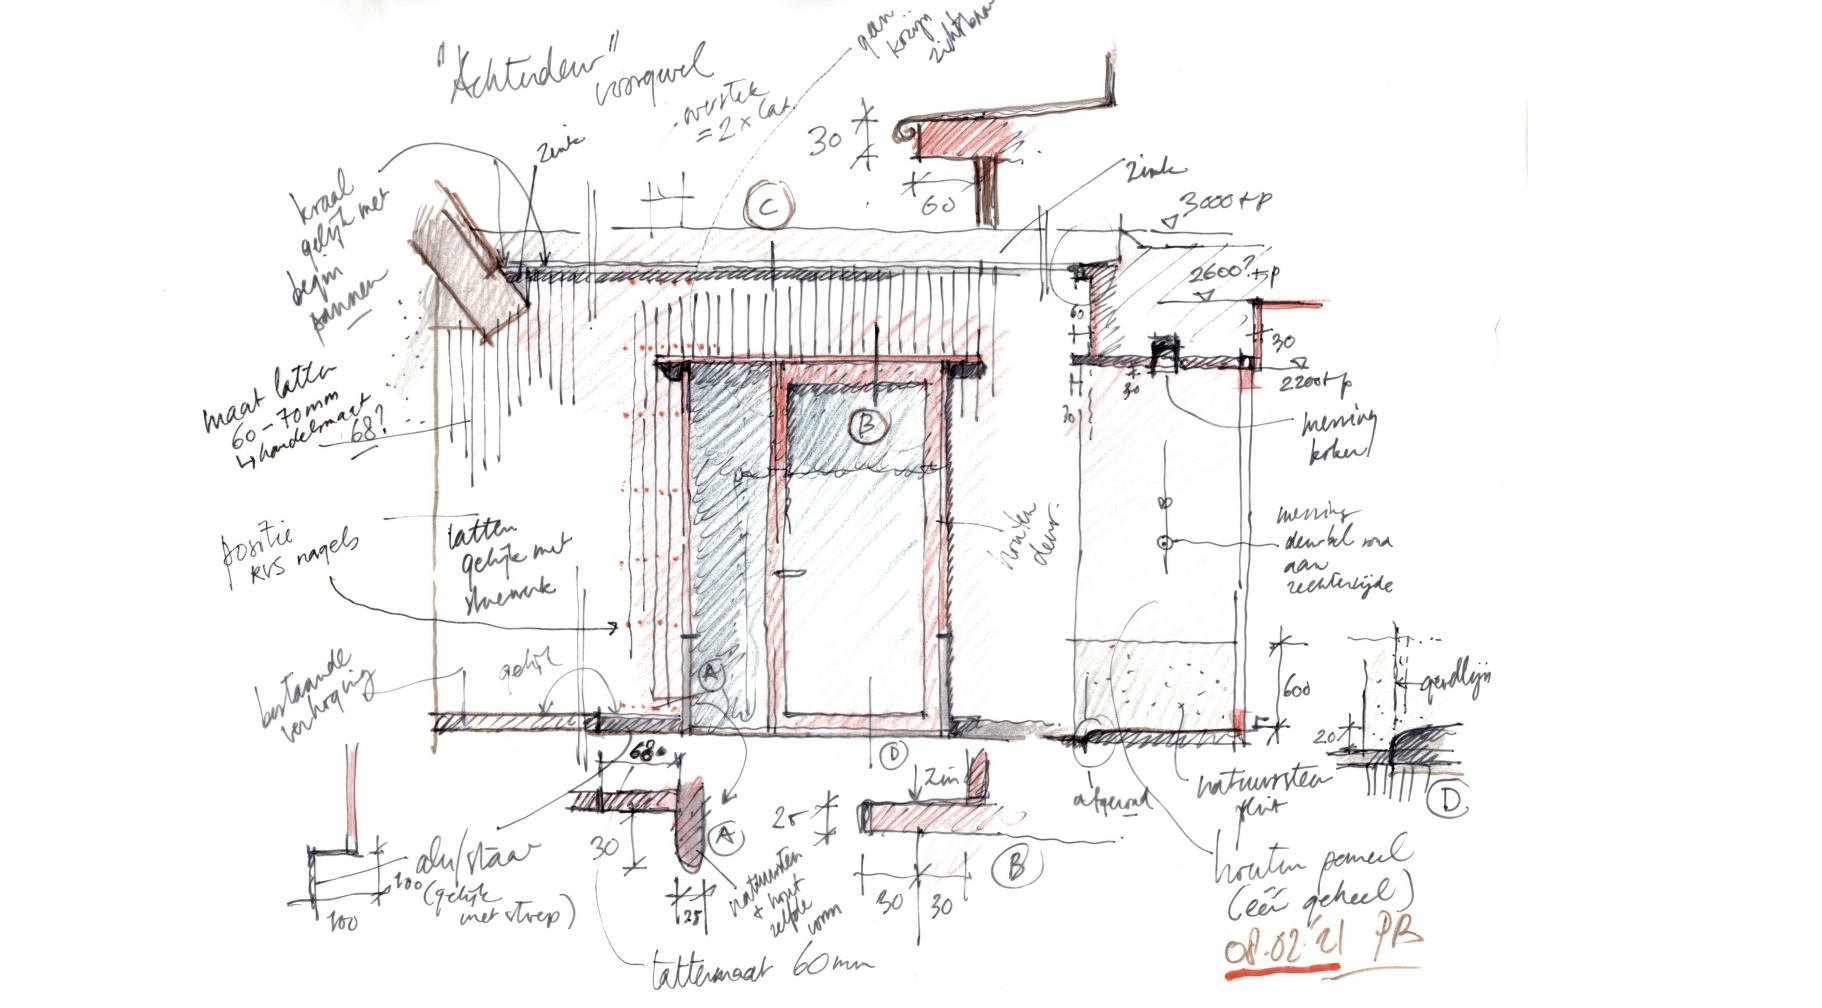 "Achterdeur"
voorgevel
overstek
= 2 x lat
geen
kozijn
zichtbaar
zink
kraal
gelijk met
begin
pannen
30
60
C
zink
3000+p
2600?+p
30
2200+p
60
30
70
maat latten
60-70mm
↳ handelsmaat
68?
B
messing
koker
positie
RVS nagels
latten
gelijk met
houten
deur.
messing
deurbel rond
aan
rechterzijde
bestaande
verhoging
gelijk
A
600
20
D
68
D
afgerond
natuursteen
plint
D
alu/staal
(gelijk
met stoep)
100
100
30
A
25
natuursteen
+ hout
zelfde
vorm
25
zink
B
30
30
houten paneel
(één geheel)
lattenmaat 60mm
08.02.'21 PB